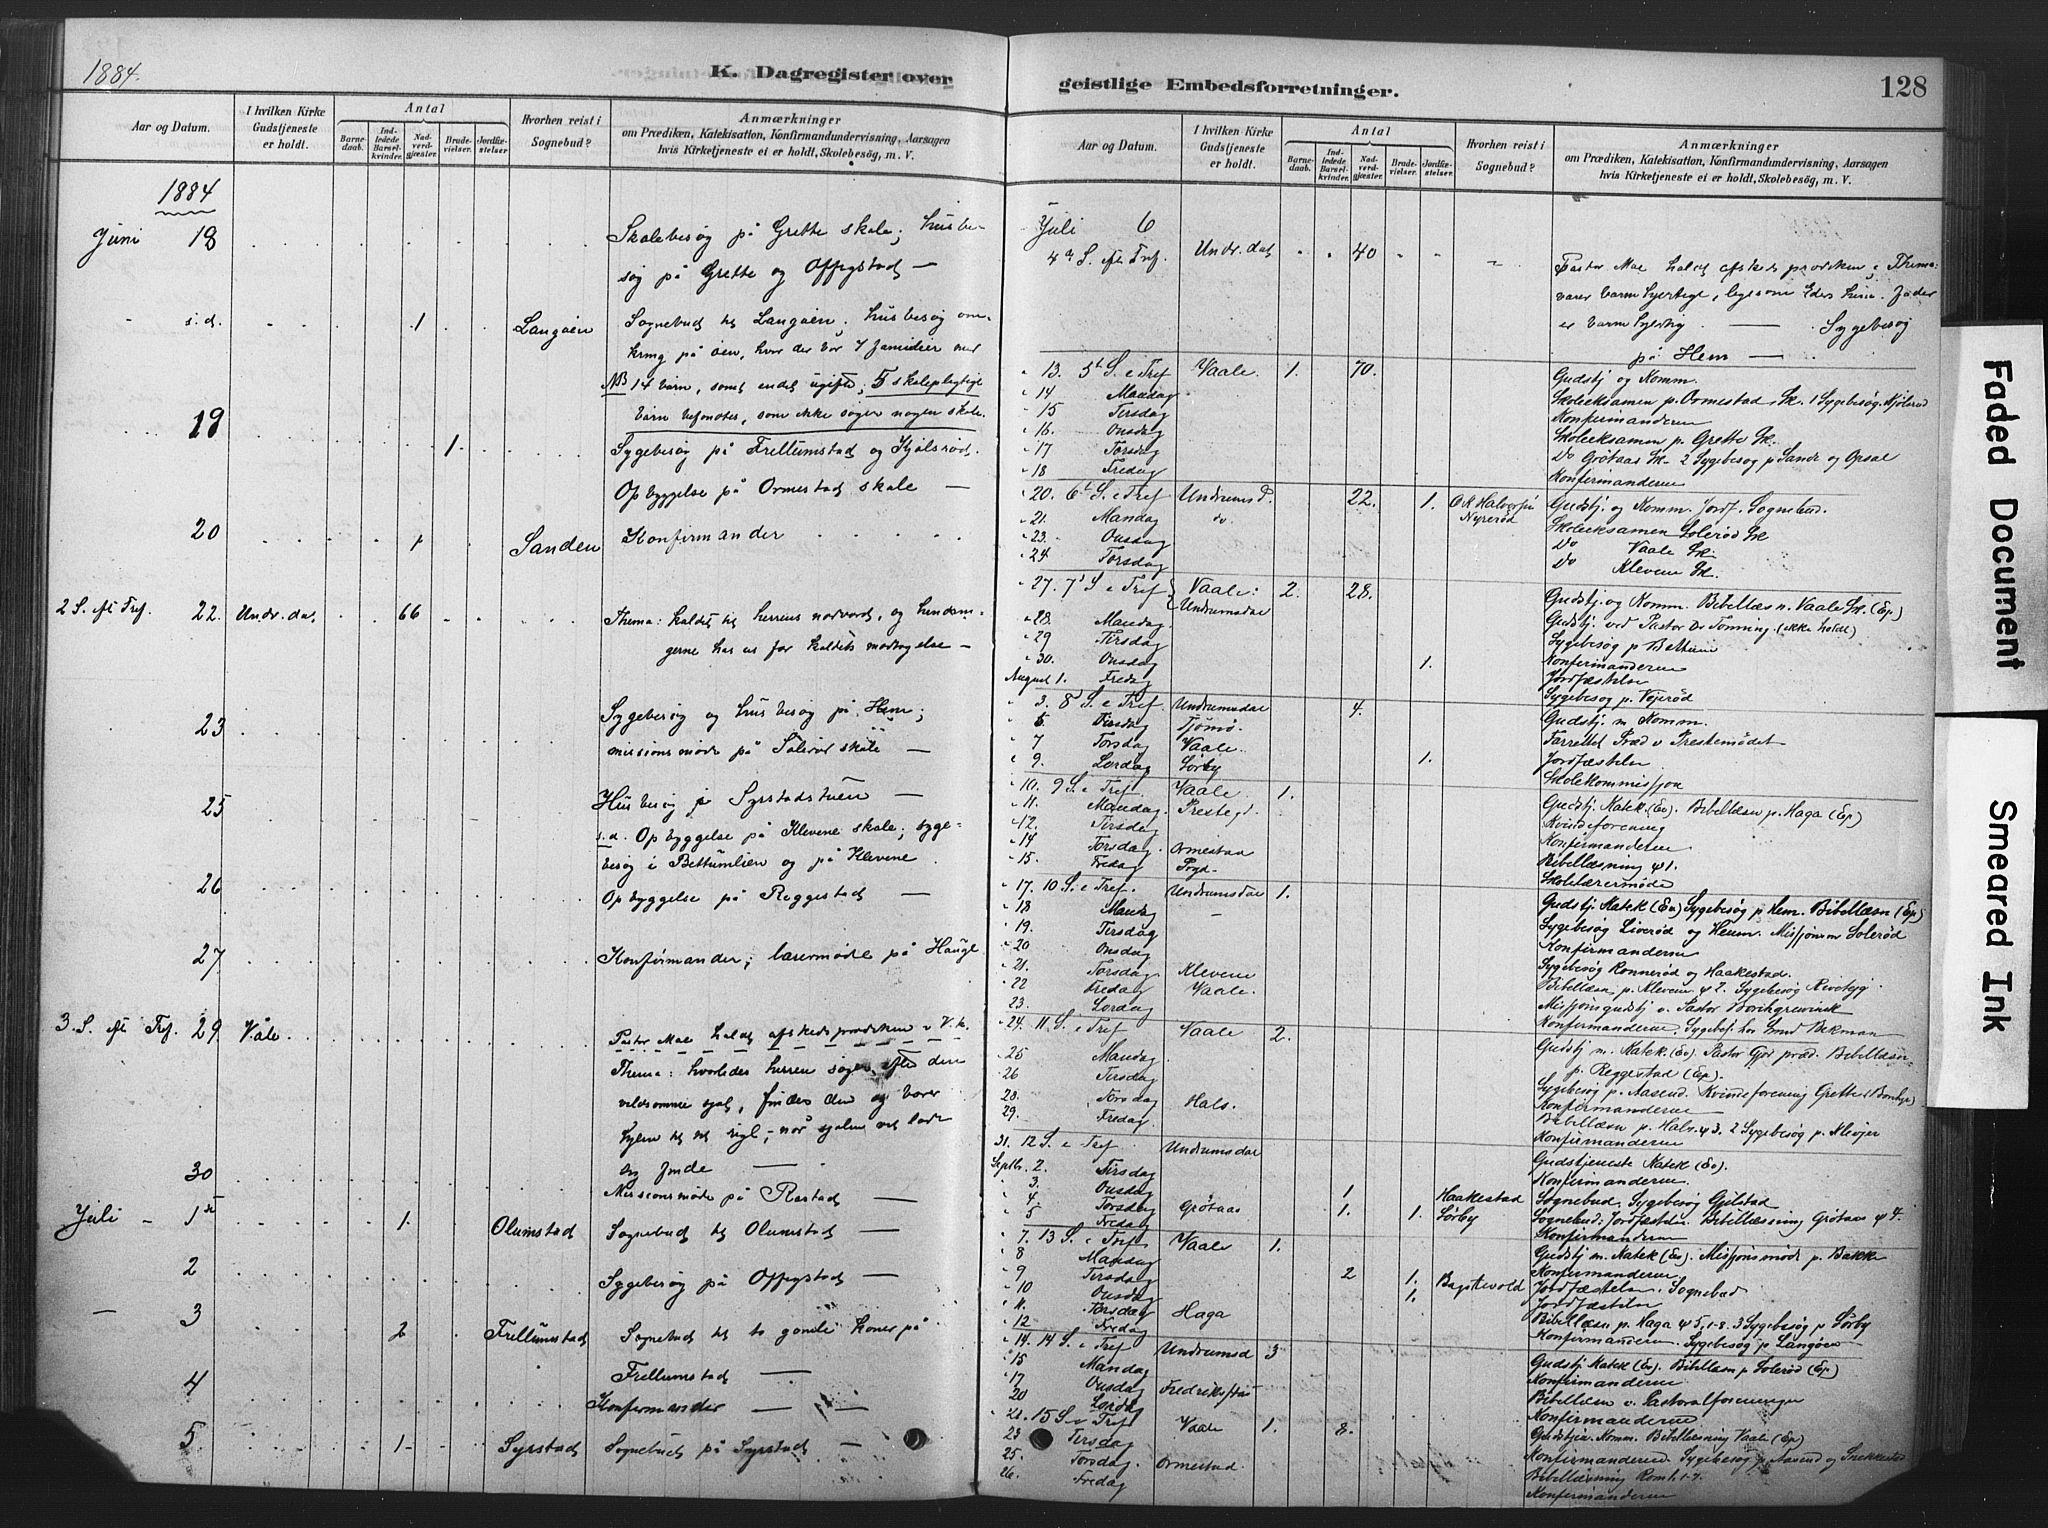 1884.
K. Dagregister over
Aar og Datum.
I hvilken Kirke Gudstjeneste er holdt.
Antal
Barnedaab.
Indledede Barselkvinder.
Nadverdgjæster.
Brudevielser.
Jordfæstelser.
Hvorhen reist i Sognebud?
Anmærkninger
om Prædiken, Katekisation, Konfirmandundervisning, Aarsagen
hvis Kirketjeneste ei er holdt, Skolebesøg, m. V.
1884
Juni 18 Skolebesøg på Grette skole; husbe-
søg på Grette og Offigstad —
s.d. 1 Langøen Sognebud til Langøen. Husbesøg om-
kring på øen, hvor der bor 7 familier med
NB 14 børn, samt endel ugifte; 5 skolepligtige
børn befandtes, som ikke søger nogen skole.
19 1. Sygebesøg på Frellumstad og Kjølsrød.
Opbyggelse på Ormestad skole —
20 1 Sanden Konfirmander
2 S. eft. Tref. 22. Undr.dal 66 Thema: kaldet til herrens nadverd, og hindrin-
gerne hos os for kaldets modtagelse —
23 Sygebesøg og husbesøg på Hem;
missionsmøde på Solerød skole —
25 Husbesøg på Syrstadstuen —
s.d. Opbyggelse på Klevene skole; syge-
besøg i Bettumlien og på Klevene.
26 Opbyggelse på Reggestad —
27 Konfirmander; lærermøde på Haugl.
3. S. eft. Tref. 29 Våle. Pastor Moe holdt afskedsprædiken i V.k.
Thema: hvorledes herren søger efter den
vildsomme sjæl, finder den og bærer
hjem til sit rige, — når sjælen vil lade
sig finde —
30 Missionsmøde på Rastad —
Juli 1ste 1. Olumstad Sognebud til Olumstad —
2 Sygebesøg på Offigstad —
3 2 Frellumstad Sognebud til to gamle koner på
Frellumstad —
4 Konfirmander —
5 1 Syrstad Sognebud på Syrstad —
geistlige Embedsforretninger.
128
Aar og Datum.
I hvilken Kirke Gudstjeneste er holdt.
Antal
Barnedaab.
Indledede Barselkvinder.
Nadverdgjæster.
Brudevielser.
Jordfæstelser.
Hvorhen reist i Sognebud?
Anmærkninger
om Prædiken, Katekisation, Konfirmandundervisning, Aarsagen
hvis Kirketjeneste ei er holdt, Skolebesøg, m. V.
Juli 6
4de S. eft. Tref. Undr.dal 40 Pastor Moe holdt afskedsprædiken; Thema:
værer barmhjertige, ligesom Eders himm. Fader
er barmhjertig — Sygebesøg
på Hem —
13. 5te S. e Tref Vaale. 1. 70. Gudstj og Komm.
14 Mandag Skoleeksamen p. Ormestad Sk. 1 Sygebesøg. Kjølsrød
15 Tirsdag Konfirmanderne
16. Onsdag Skoleeksamen p. Grette Sk.
17 Torsdag Do Grötaas Sk. 2 Sygebesøg p Sande og Opsal
18 Fredag Konfirmanderne
20. 6te S. e Tref Undrumsd. 22. 1. Nyrerød Gudstj. og Komm. Jordf. Sognebud.
21. Mandag do. Skoleeksamen Solerød Sk
23. Onsdag Do Vaale Sk.
24 Torsdag Do Klevene Sk.
27. 7de S e Tref Vaale: 2. 28. Gudstj. og Komm. Bibellæsn. Vaale Sk. (Ep)
Undrumsdal Gudstj. ved Pastor Dr Tønning (ikke holdt)
28. Mandag Sygebesøg p Bettum
29 Tirsdag Konfirmanderne
30. Onsdag 1. Jordfæstelse
August 1. Fredag Sygebesøg p. Vejerød
3. 8 S. e Tref. Undrumsdal 4. Gudstj. m. Komm.
5. Tirsdag Tjømø. Forrettet Præd v Prestemødet
7 Torsdag Vaale. 1. Jordfæstelse
9. Lørdag Sørby Skolekommissjon
10. 9 S. e Tref. Vaale 1. Gudstj. Katek (Ev). Bibellæsn p. Haga (Ep)
11. Mandag. Prestegd. Kvindeforening
12. Tirsdag Konfirmanderne
14 Torsdag Ormestad Bibellæsning ψ 1.
15. Fredag Prgd. Skolelærermøde
17. 10 S. e Tref. Undrumsdal 1. Gudstj. Katek (Ev) Sygebesøg p Hem. Bibellæsn (Ep)
18 Mandag — Sygebesøg Liverød og Heum. Missjonsm Solerød
19. Tirsdag Konfirmanderne
20 Onsdag Sygebesøg Ronnerød og Haakestad.
21. Torsdag Klevene Bibellæsn p. Klevene ψ 2. Sygebesøg
22 Fredag Vaale. Missjonsgudstj v. Pastor Borchgrevinck
23. Lørdag Konfirmanderne
24. 11 S. e Tref Vaale 2. Gudstj m. Katek (Ev). Pastor Gjør præd. Bibellæsn
p. Reggestad (Ep).
25 Mandag Sygebesøg p. Aasrud. Kvindeforening Grette
26 Tirsdag Konfirmanderne
28. Torsdag Hals. Bibellæsn p. Hals. ψ 3. 2 Sygebesøg p. Klevjer
29. Fredag Konfirmanderne
31. 12 S. e Tref Undrumsdal Gudstjeneste Katek (Ev).
Septbr. 2. Tirsdag Konfirmanderne
3. Onsdag 1 Haakestad Sognebud. Sygebesøg Gjilstad
4 Torsdag Grötaas 1. 1. Sørby Sognebud: Jordfæstelse. Bibellæsning Grötaas ψ 4.
5 Fredag Konfirmanderne
7. 13 S. e Tref Vaale 1. Gudstj m. Katek (Ev). Missjonsmøde p. Bakke
8 Mandag Konfirmanderne
9 Tirsdag 2 1. Bagstevold Jordfæstelse. Sognebud
10 Onsdag 1. Jordfæstelse
11. Torsdag Haga Bibellæsn p. Haga ψ 5, 1-8. 3 Sygebesøg p Sørby
12 Fredag Konfirmanderne. Sygebesøg p Langøen
14. 14 S. e Tref Undrumsd 3 Gudstj Katek (Ev). Bibellæsn p Solerød (Ep)
15 Mandag Konfirmanderne.
17 Onsdag Bibellæsn v. Pastoralforeningen
20 Lørdag Konfirmanderne
21. 15 S e Tref Vaale 1. 8. Gudstjen. Komm. Bibellæsning Vaale (Ep)
23 Tirsdag Konfirmanderne. Sygebesøg p Aasrud og Snekkestad
25. Torsdag. Ormestad. Bibellæsning Rom 1. 1-7.
26. Fredag Konfirmanderne
Faded Document
Smeared Ink